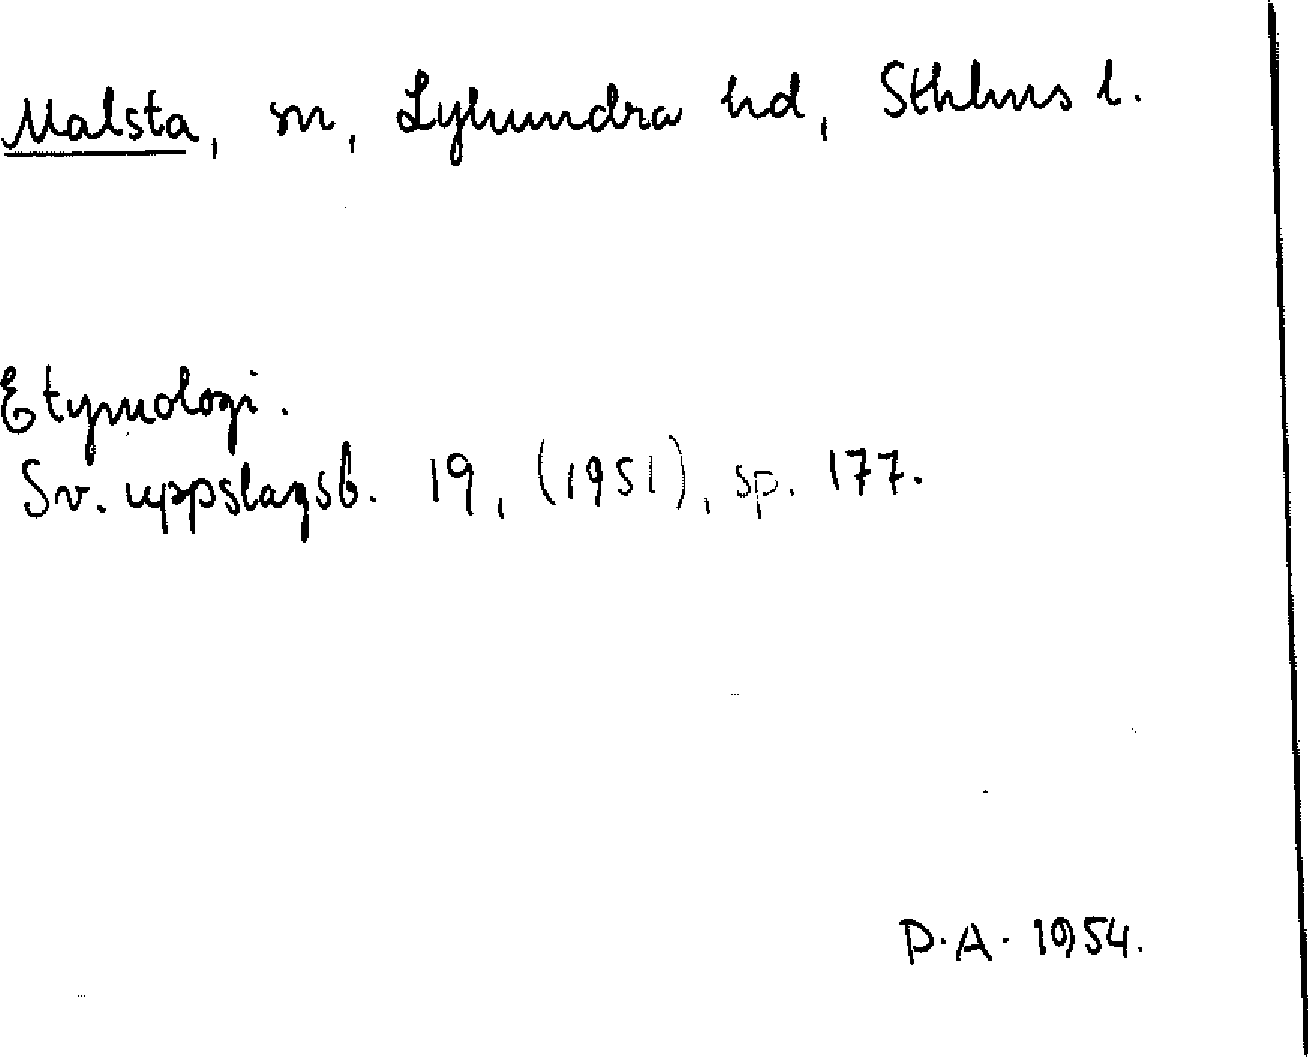 Malsta, sn, Lyhundra hd, Sthlms l.
Etymologi.
Sv. uppslagsb. 19, (1951), sp. 177.
P.A. 1954.